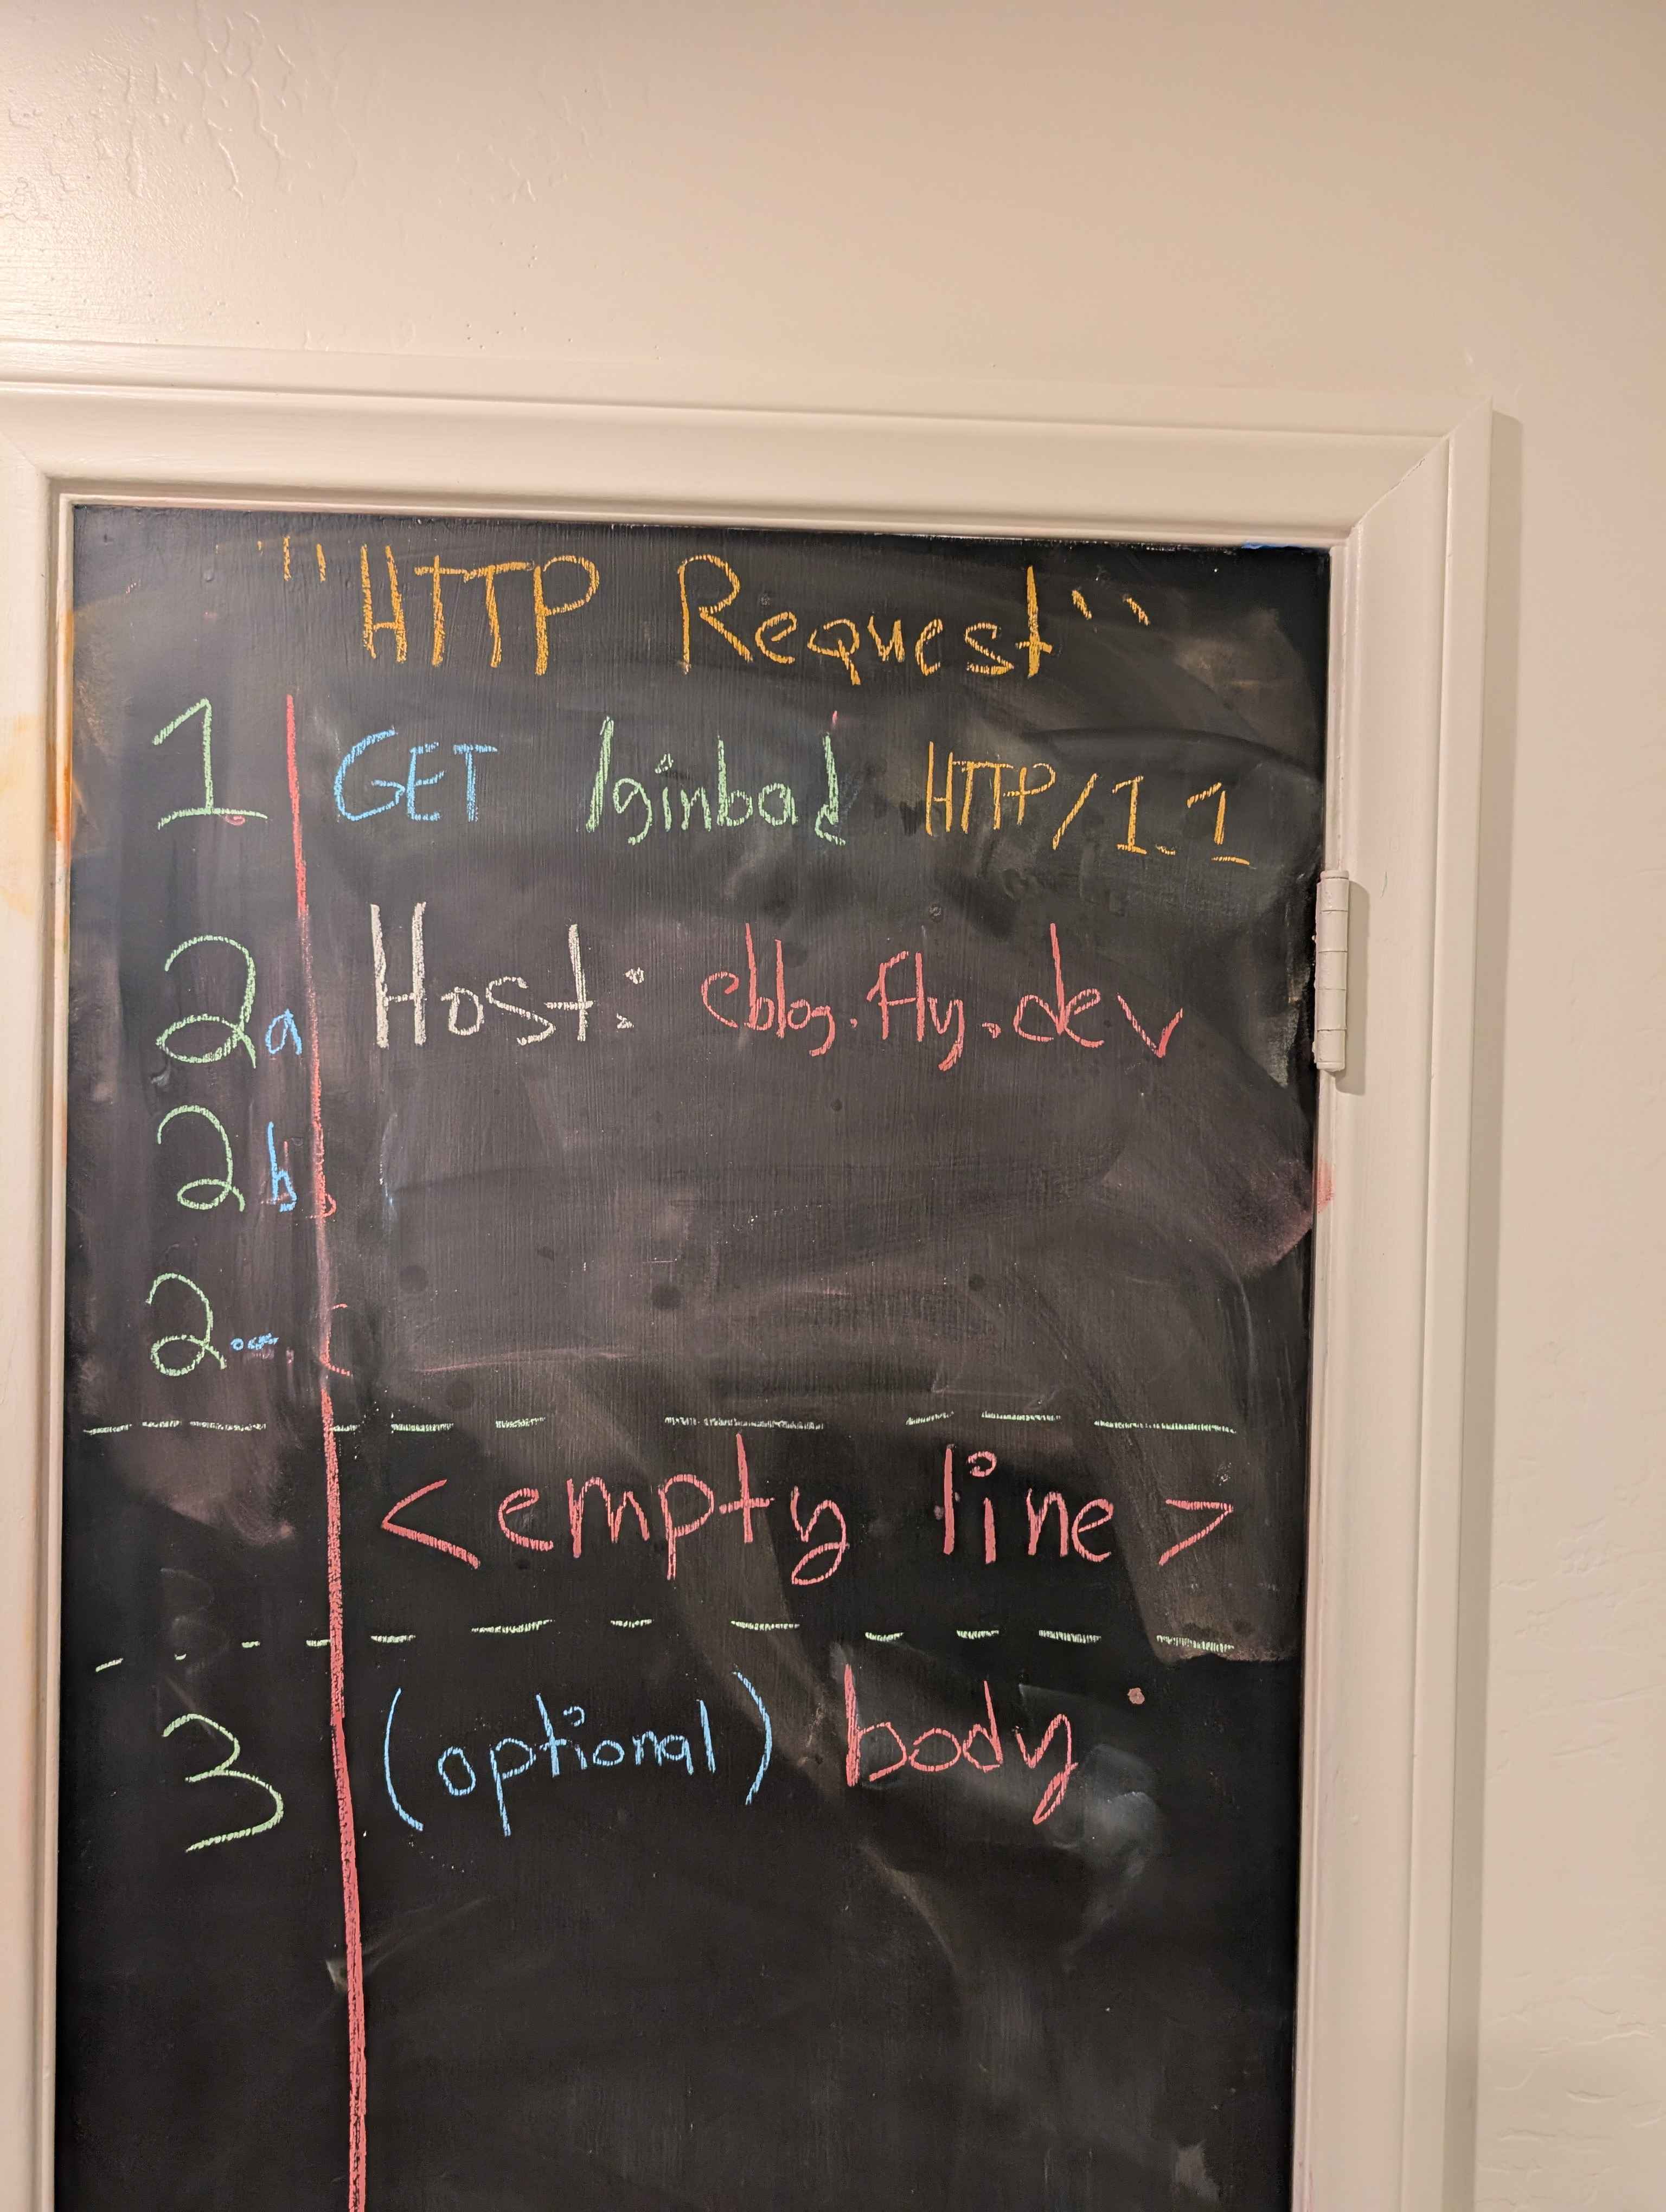 "HTTP Request"
1 GET /ginbad HTTP/1.1
2a Host: eblog.fly.dev
2b
2...
<empty line>
3 (optional) body